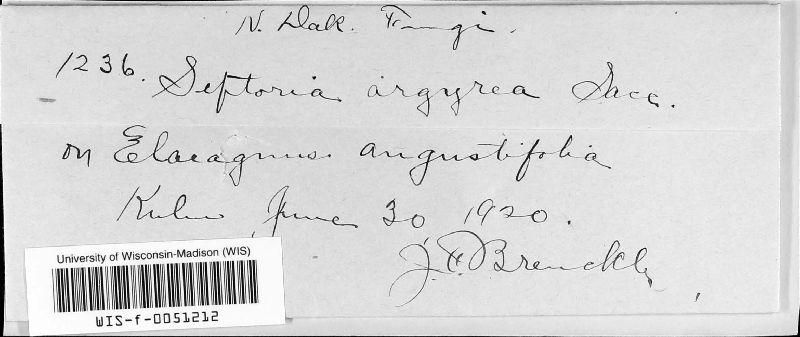 N. Dak. Fungi.
1236. Septoria argyrea Sacc.
on Elaeagnus angustifolia
Kulm June 30, 1920.
J. F. Brenckle,
University of Wisconsin-Madison (WIS)
WIS-f-0051212